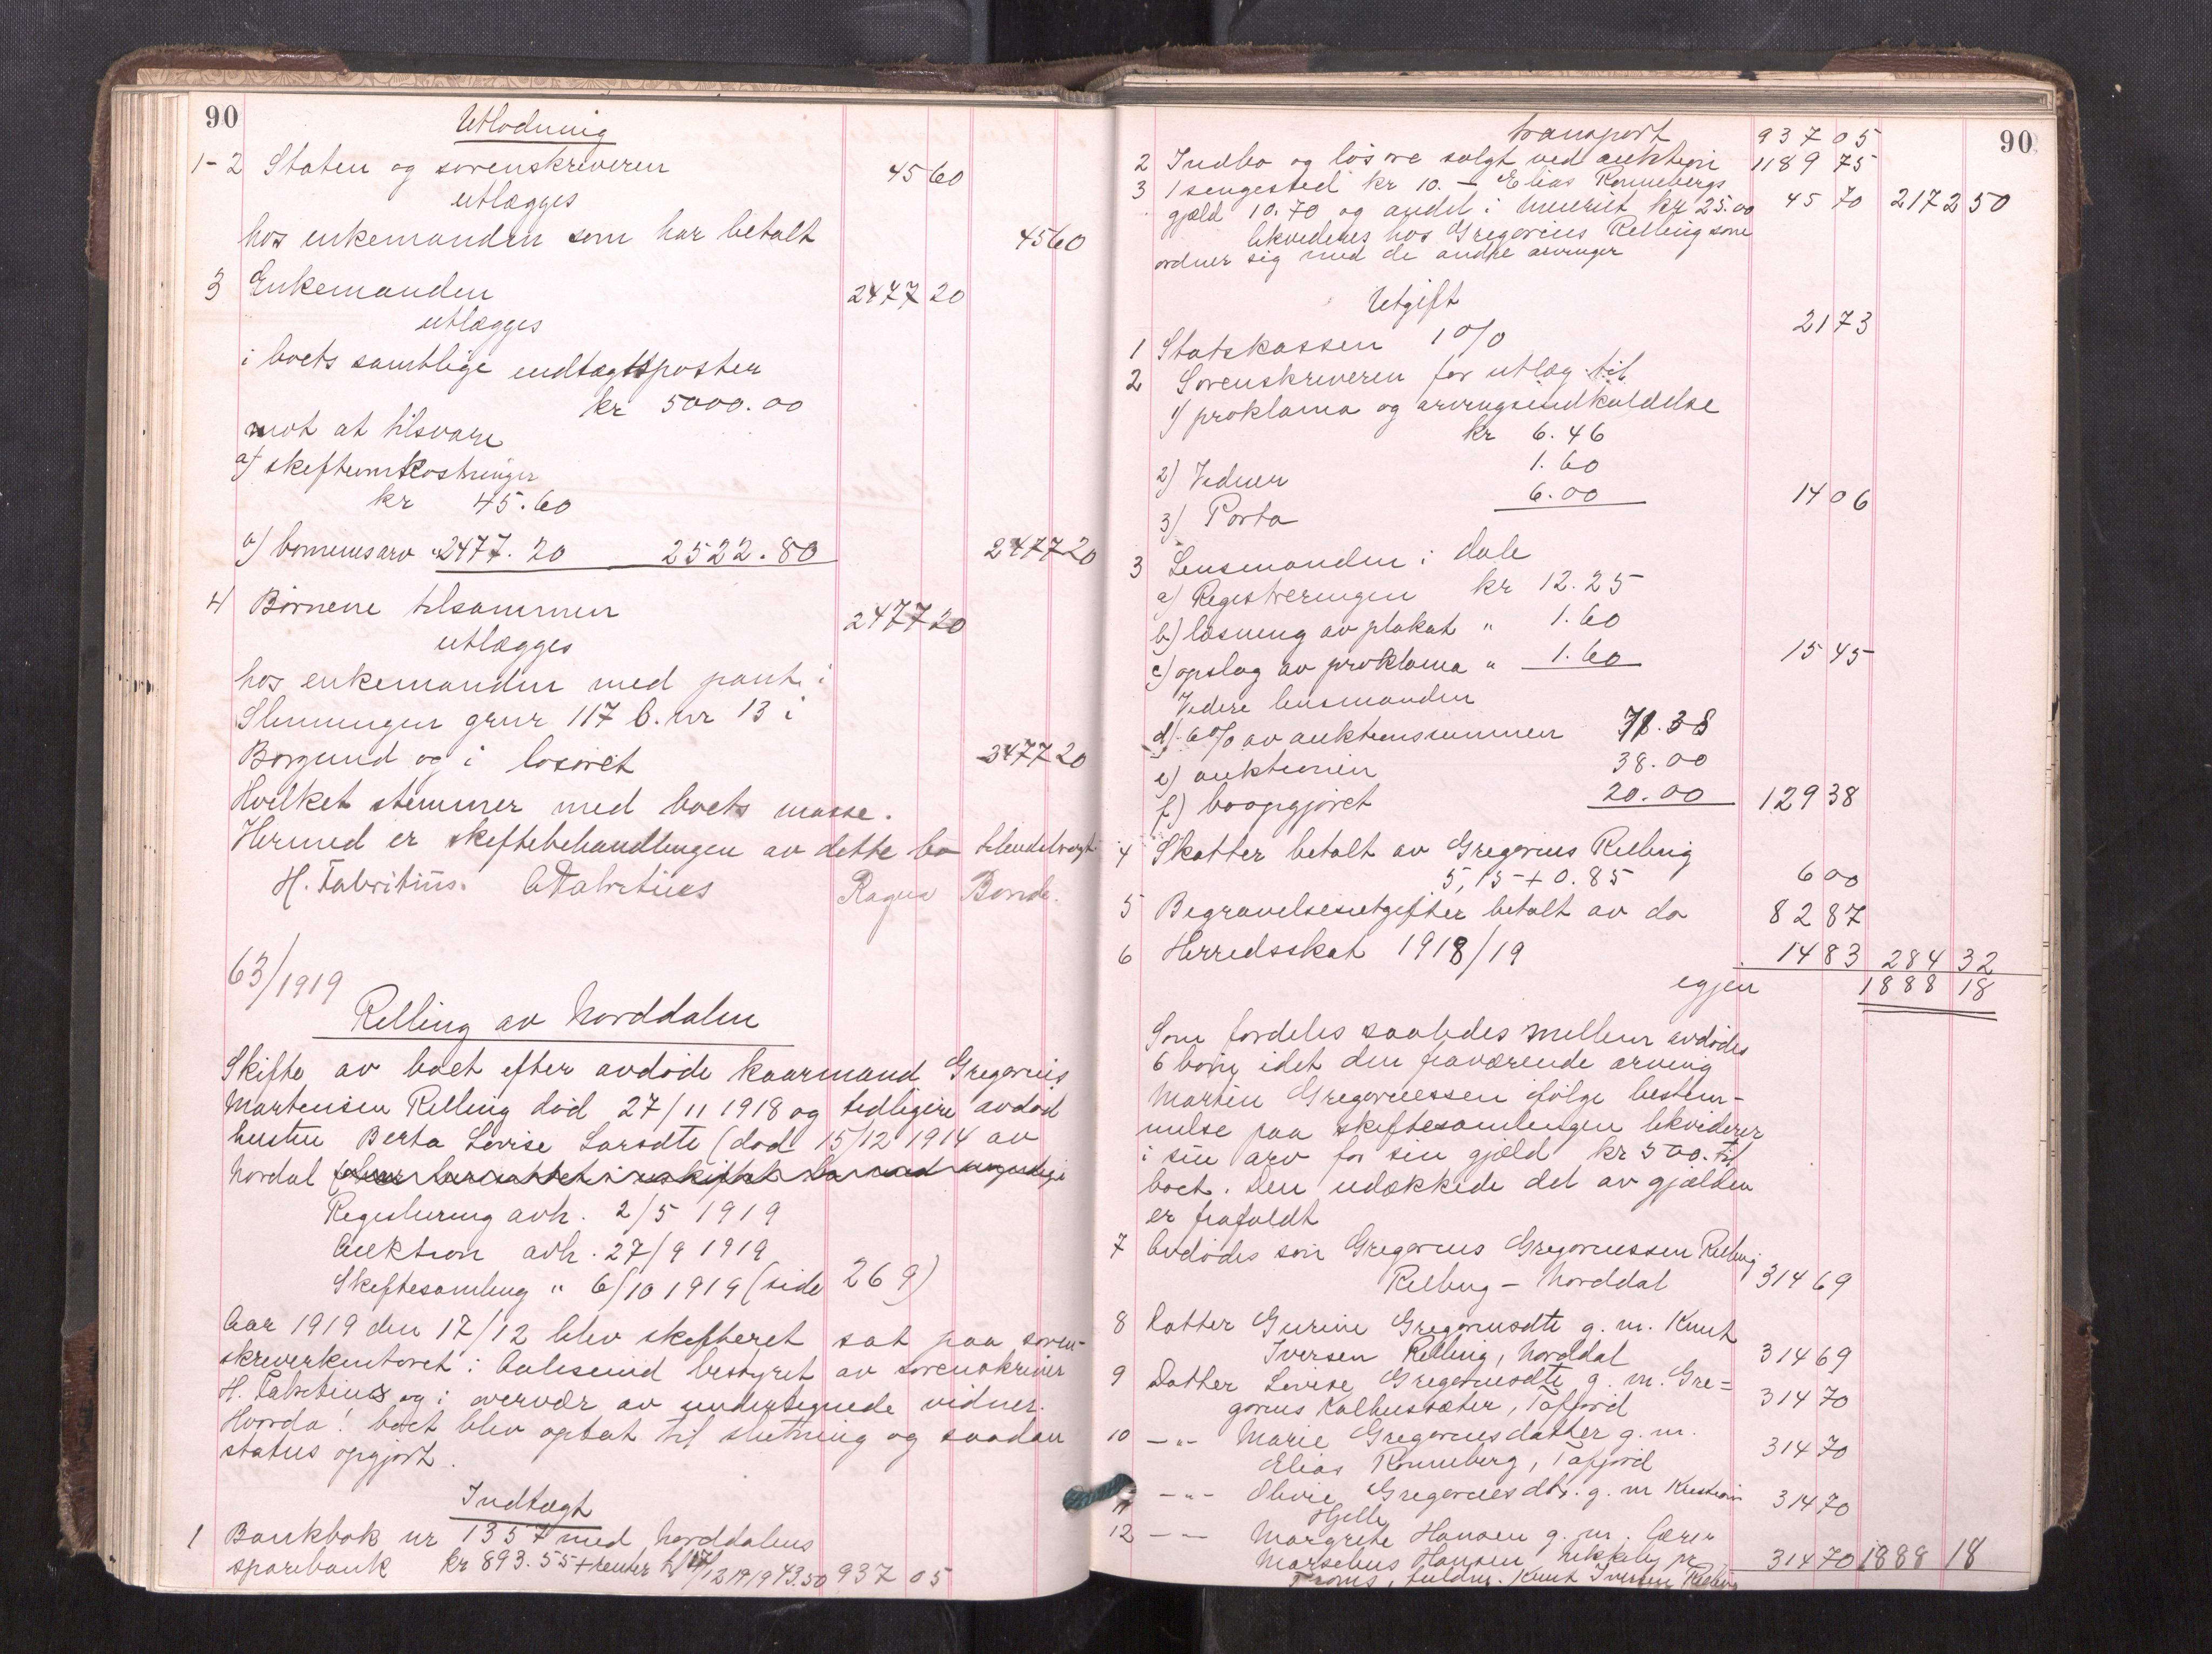 90
Utlodning
1-2 Staten og sorenskriveren 45 60
utlægges
hos enkemanden som har betalt 45 60
3 Enkemanden 2477 20
utlægges
i boets samtlige indtægtsposter
kr 5000.00
mot at tilsvare
a) skifteomkostninger
kr 45.60
b) bornenes arv 2477.20 2522.80 2477 20
4 Børnene tilsammen 2477 20
utlægges
hos enkemanden med pant i
Slinningen gnr 117 b.nr 13 i
Borgund og i løsøret 2477 20
Hvilket stemmer med boets masse.
Hermed er skiftebehandlingen av dette bo tilendebragt
H. Fabritius. A Fabritius Ragna Bonde.
63/1919
Relling av Norddalen
Skifte av boet efter avdøde kaarmand Gregorius
Martensen Relling død 27/11 1918 og tidligere avdød
hustru Berta Lovise Larsdtr (død 15/12 1914 av
Nordal
Registrering avh. 2/5 1919
Auktion avh. 27/9 1919
Skiftesamling " 6/10 1919 (side 269)
Aar 1919 den 17/12 blev skifteret sat paa soren-
skriverkontoret i Aalesund bestyret av sorenskriver
H. Fabritius og i overvær av undertegnede vidner.
Hvorda! boet blev optat til slutning og saadan
status opgjort.
Indtægt
1 Bankbok nr 1357 med Norddalens
sparebank kr 893.55 + renter til 17/12 1919 43.50 937 05
90
transport 937 05
2 Indbo og løsøre solgt ved auktion 1189 75
3 1 sengested kr 10. - Elias Ronnebergs
gjæld 10.70 og andel i meieriet kr 25.00 45 70 2172 50
likvideres hos Gregorius Relling som
ordner sig med de andre arvinger
Utgift
1 Statskassen 1 % 21 73
2 Sorenskriveren for utlæg til
1) proklama og arvingsindkaldelse
kr 6.46
2) Vidner 1.60
3) Porto 6.00 14 06
3 Lensmanden i dale
a) Registreringen kr 12.25
b) læsning av plakat " 1.60
c) opslag av proklama " 1.60 15 45
Videre lensmanden
d) 6 % av auktionssummen 71.38
e) auktionen 38.00
f) boopgjøret 20.00 129 38
4 Skatter betalt av Gregorius Relling
5,15 + 0.85 6 00
5 Begravelsesutgifter betalt av do 82 87
6 Herredsskat 1918/19 14 83 284 32
igjen 1888 18
Som fordeles saaledes mellem avdødes
6 børn idet den fraværende arving
Martin Gregoriussen ifølge bestem-
melse paa skiftesamlingen likviderer
i sin arv for sin gjæld kr 500. til
boet. Den udækkede del av gjælden
er frafaldt
7 Avdødes søn Gregorius Gregoriussen Relling
Relling - Norddal 314 69
8 Datter Gurine Gregoriusdtr g. m. Knut
Iversen Relling, Norddal 314 69
9 Datter Lovise Gregoriusdtr g. m. Gre=
gorius Kalhussæter, Tafjord 314 70
10 -"- Marie Gregoriusdatter g. m.
Elias Ronneberg, Tafjord 314 70
11 -"- Olivie Gregoriusdtr. g. m Kristian
Hjelle 314 70
12 -"- Margrete Hansen g. m.
Marselius Hansen, pr
Tromsø, fuldm. Knut Iversen Relling 314 70 1888 18